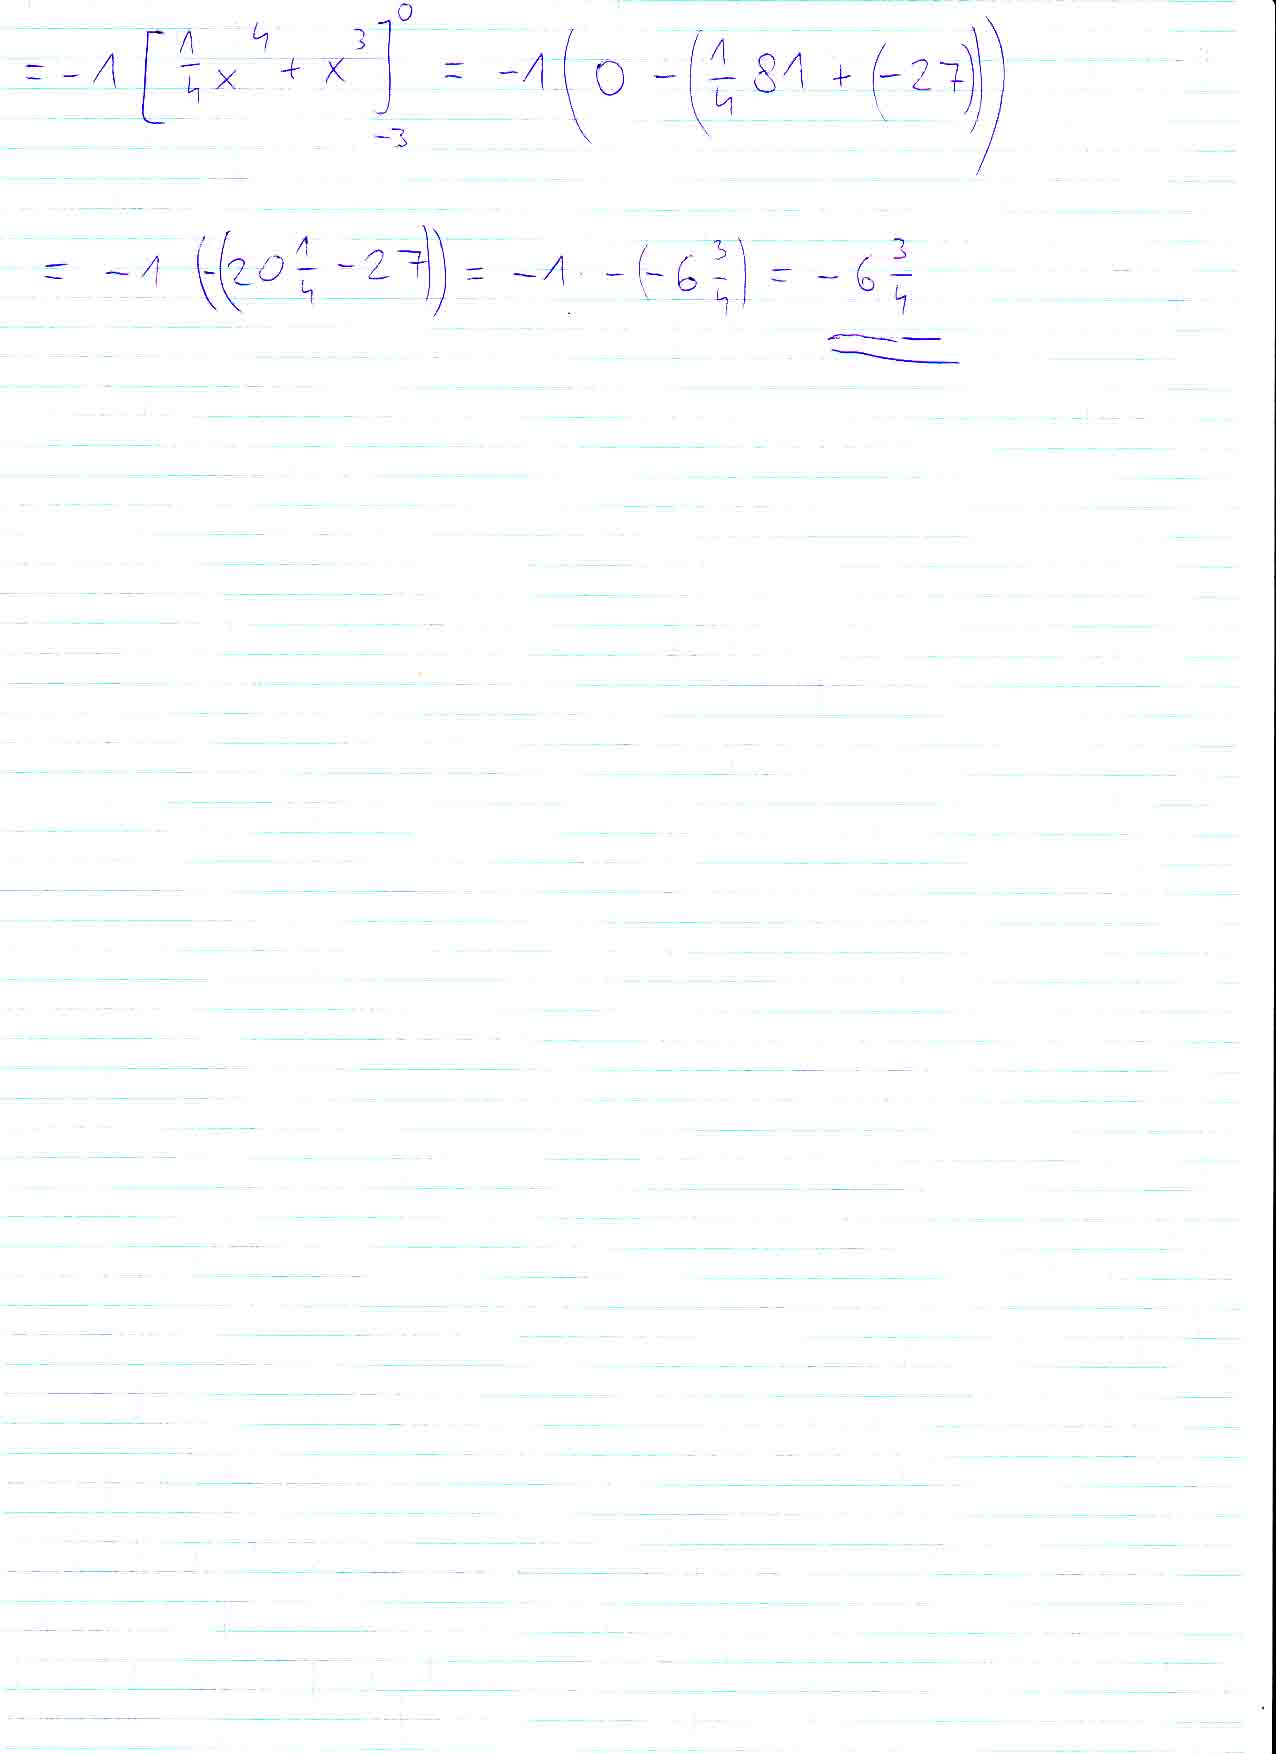 = -1 [1/4 x^4 + x^3]_{-3}^{0} = -1 (0 - (1/4 81 + (-27)))
= -1 (-(20 1/4 - 27)) = -1 · -(-6 3/4) = -6 3/4